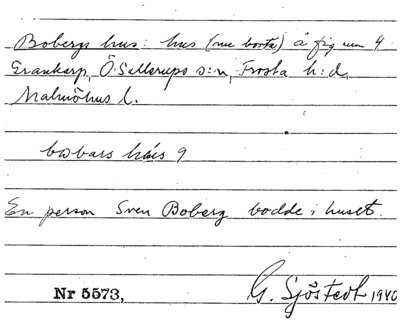 Bobergs hus: hus (nu borta) å fig num 4
Evankarp, Ö. Sallerups s:n, Frosta h:d,
Malmöhus l.
En person Sven Boberg bodde i huset.
Nr 5573,
G. Sjöstedt 1940